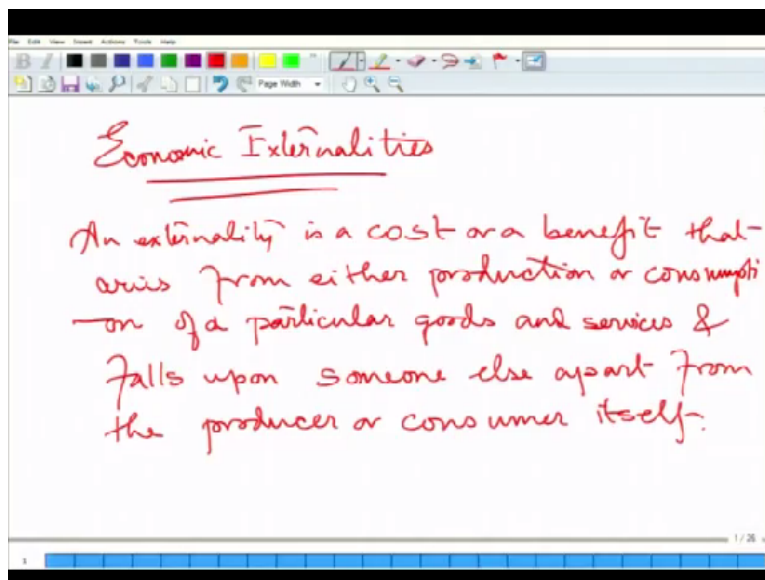 File Edit View Insert Actions Tools Help
B I
Page Width
Economic Externalities
An externality is a cost or a benefit that
aris from either production or consumpti
-on of a particular goods and services &
falls upon someone else apart from
the producer or consumer itself.
1 / 26
1